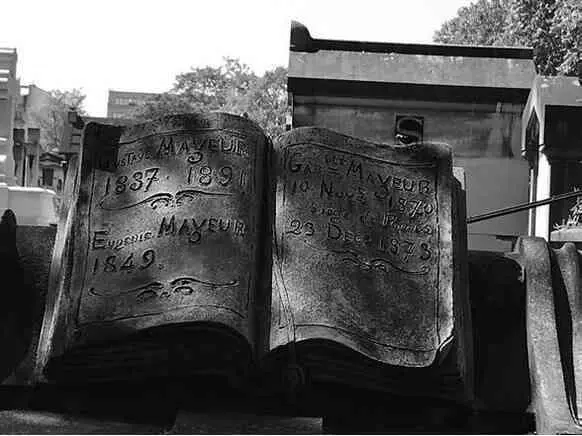 Gustave Mayeur
1837. 1891
Eugenie Mayeur
1849.
Mayeur
10 Nov 1870
23 Dec 1873